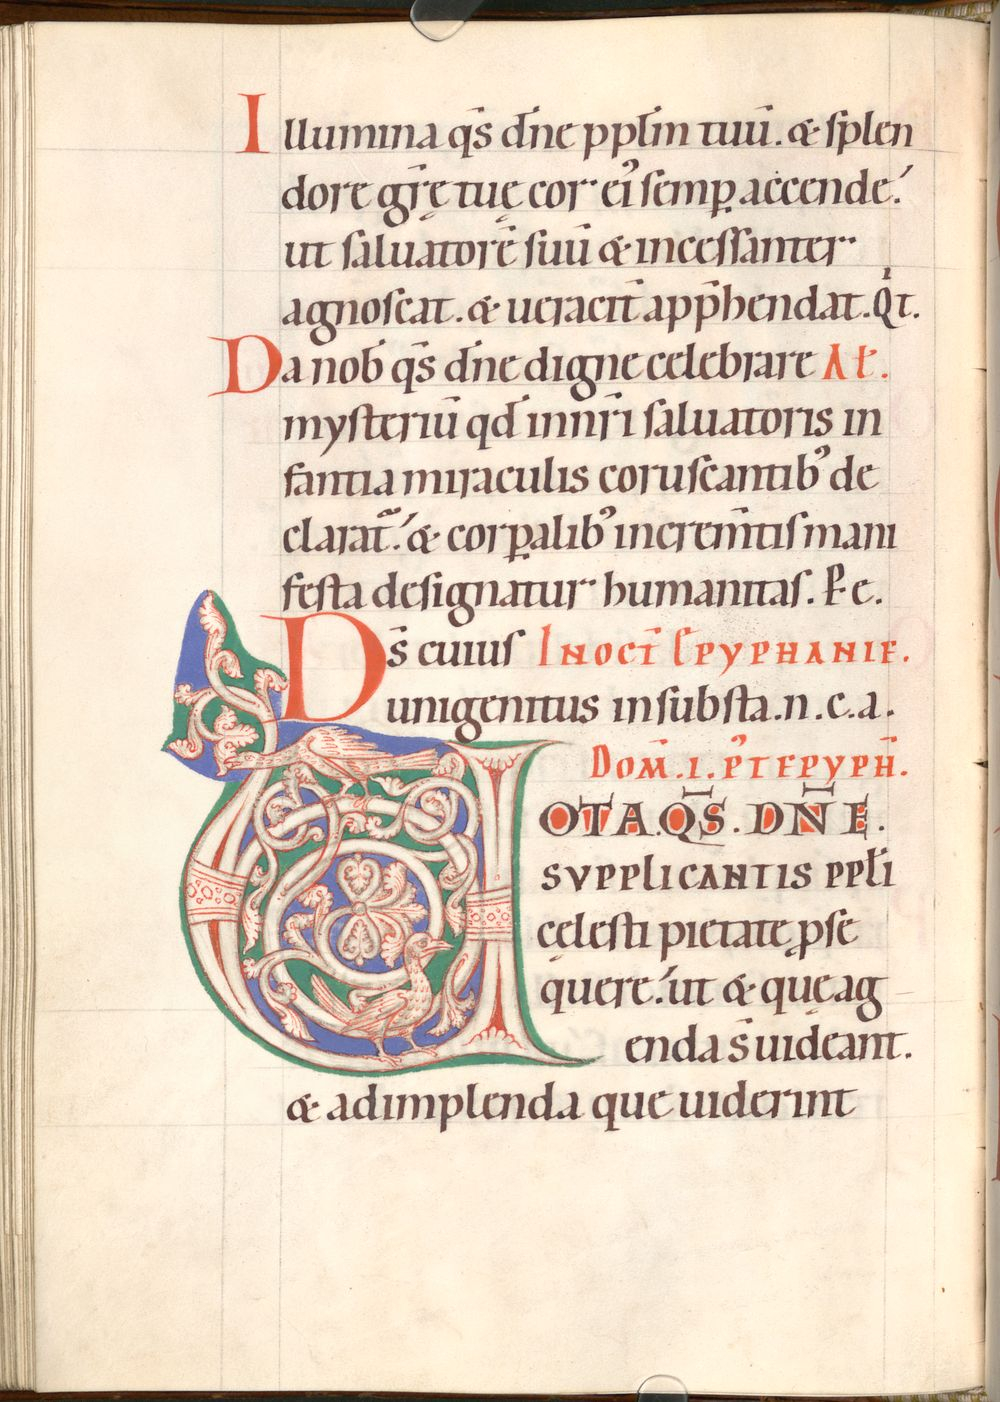 Illumina q̄s dn̄e ppl̄m tuū. & splen
dore gr̄ę tuę cor ei᾽ semꝑ accende.
ut saluatorē suū & incessanter
agnoscat. & ueracit̄ app̄hendat. Q̇t.
Da nob̄ q̄s dn̄e digne celebrare Al̄.
mysteriū qd̄ in nr̄i saluatoris in
fantia miraculis coruscantib᾽ de
clarat̄. & corꝑalib᾽ increm̄tis mani
festa designatur humanitas. P̄ e.
Ds̄ cuius In oct̄ Epyphanie.
unigenitus in substa. n. c. a.
Dom̄. I. p᾽t epyph̄.
UOTA. Q̄S. DN̄E.
SUPPLICANTIS PPLI
cęlesti pietatē ꝓse
quere. ut & quę ag
enda s̄ uideant.
& adimplenda que uiderint